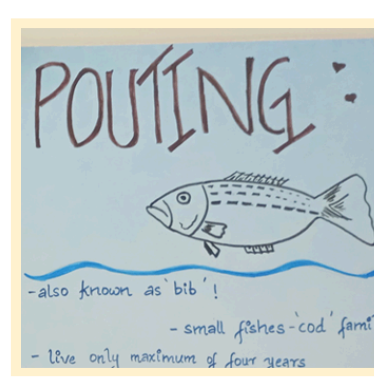 POUTING :
- also known as 'bib' !
- small fishes - 'cod'
- live only maximum of four years